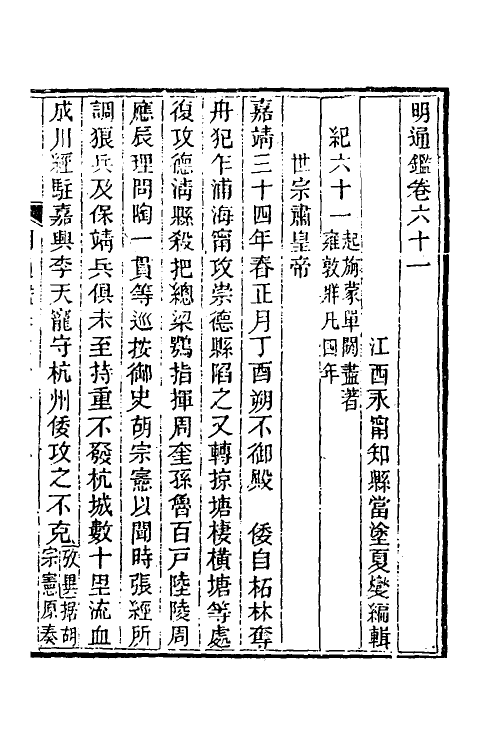 明通鑑卷六十一
江西永甯知縣當塗夏燮編輯
紀六十一起旃蒙單閼盡著
雍敦牂凡四年
世宗肅皇帝
嘉靖三十四年春正月丁酉朔不御殿　倭自柘林奪
舟犯乍浦海甯攻崇德縣陷之又轉掠塘棲橫塘等處
復攻德淸縣殺把總梁鶚指揮周奎孫魯百戸陸陵周
應辰理問陶一貫等巡按御史胡宗憲以聞時張經所
調狼兵及保靖兵俱未至持重不發杭城數十里流血
成川經駐嘉興李天寵守杭州倭攻之不克攷異据胡
宗憲原奏